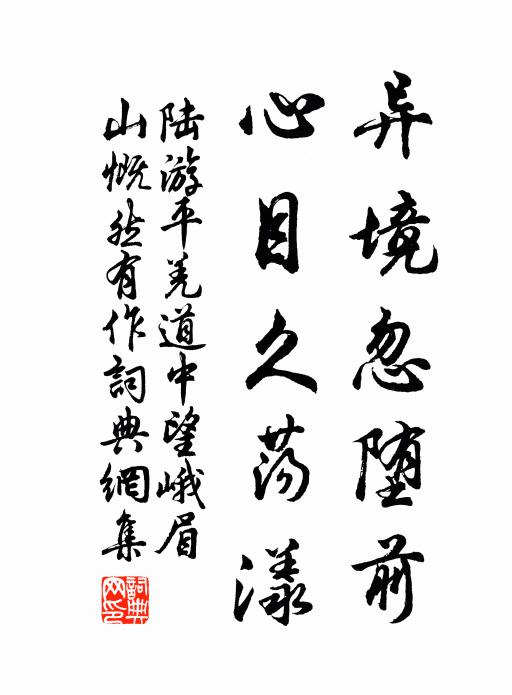 异境忽堕前
心目久荡漾
陆游平羌道中望峨眉
山慨然有作詞典網集
詞典網印